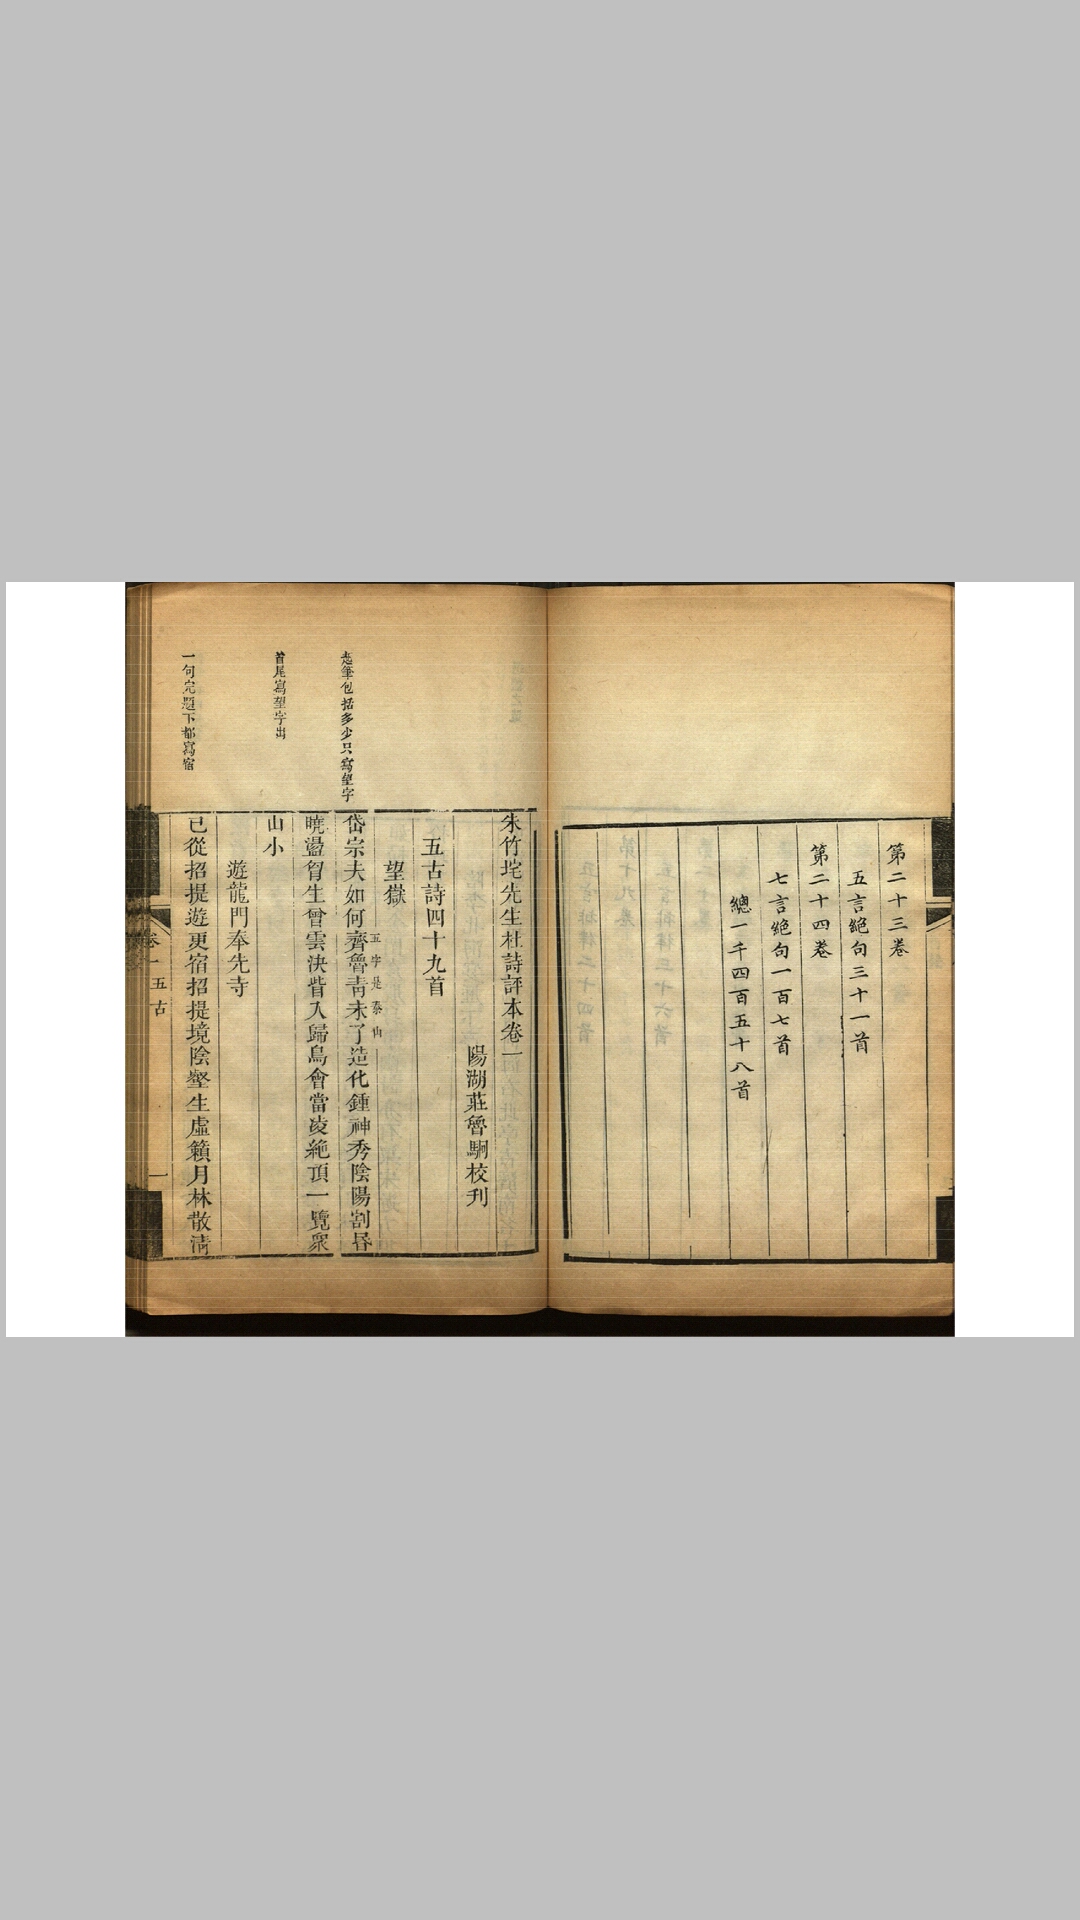 第二十三卷
五言絕句三十一首
第二十四卷
七言絕句一百七首
總一千四百五十八首
朱竹垞先生杜詩評本卷一
陽湖莊魯駉校刋
五古詩四十九首
望嶽
五字是泰山
起筆包括多少只寫望字
岱宗夫如何齊魯靑未了造化鍾神秀陰陽割昏
曉盪胷生曾雲決眥入歸鳥會當凌絶頂一覽衆
首尾寫望字出
山小
遊龍門奉先寺
一句完題下都寫宿
已從招提遊更宿招提境陰壑生虛籟月林散淸
卷一
五古
一